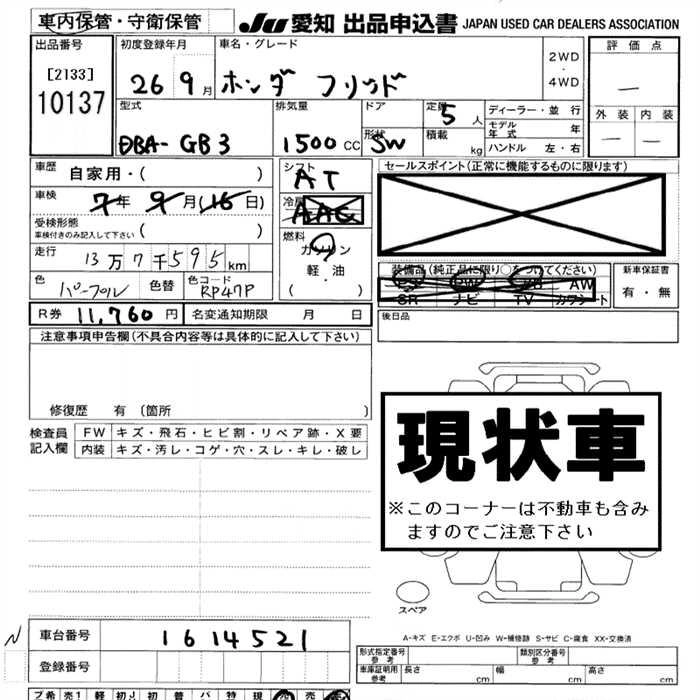 車内保管・守衛保管 JU 愛知 出品申込書 JAPAN USED CAR DEALERS ASSOCIATION
出品番号 初度登録年月 車名・グレード 2WD ・ 4WD 評価点
[2133] 26 9月 ホンダ フリード —
10137 型式 排気量 ドア 定員 5人 ディーラー・並行 外装 内装
DBA-GB3 1500cc 形状 SW 積載 kg モデル年式 年 — —
ハンドル 左・右
車歴 自家用・( ) シフト AT セールスポイント(正常に機能するものに限ります)
車検 7年9月(16日) 冷房 AAC
受検形態 車検付きのみ記入して下さい ( ) 燃料 ガソリン
走行 13万7千595km 軽・油 ・ ( ) 装備品(純正品に限り○をつけてください) 新車保証書
色 パープル 色替 色コード RP47P PS PW AW 有・無
SR ナビ TV カワシート
R券 11,760円 名変通知期限 月 日 後日品
注意事項申告欄(不具合内容等は具体的に記入して下さい)
修復歴 有(箇所 )
検査員記入欄 FW キズ・飛石・ヒビ割・リペア跡・X要
内装 キズ・汚レ・コゲ・穴・スレ・キレ・破レ
現状車
※このコーナーは不動車も含み
ますのでご注意下さい
スペア
A-キズ E-エクボ U-凹み W-補修跡 S-サビ C-腐食 XX-交換済
N 車台番号 1614521
登録番号
形式指定番号 参考 類別区分番号 参考
車庫証明用 参考 長さ cm 幅 cm 高さ cm